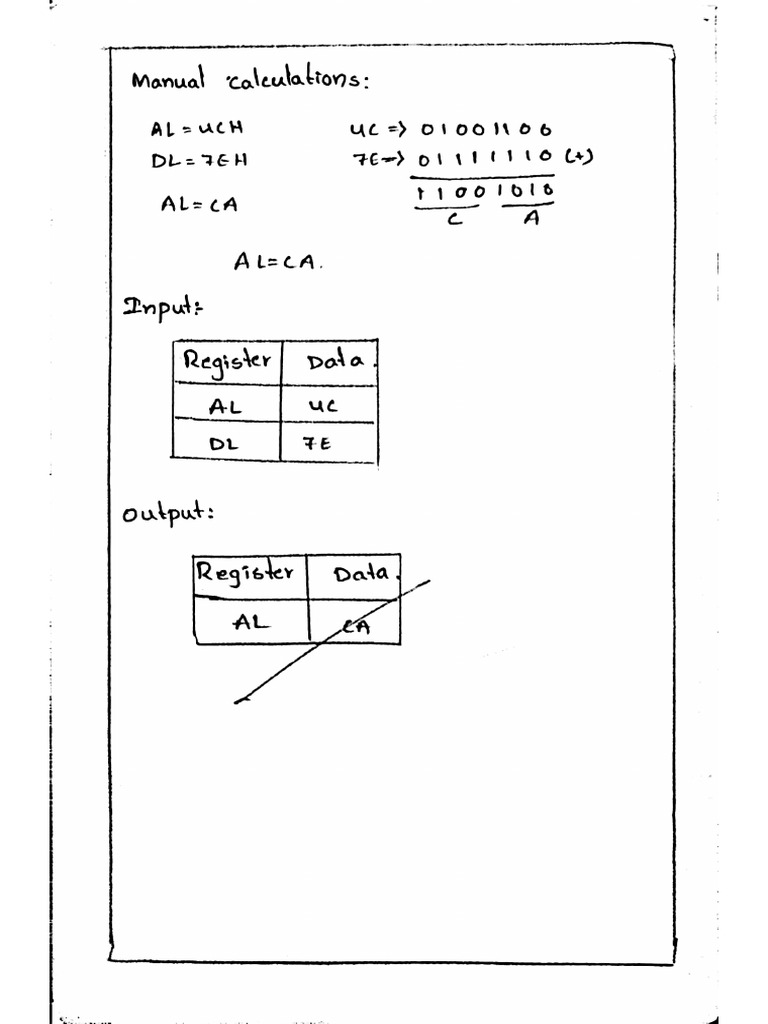 Manual calculations:
AL = 4CH 4C => 01001100
DL = 7EH 7E => 01111110 (+)
AL = CA 11001010
C A
AL = CA.
Input:-
Register Data.
AL 4C
DL 7E
Output:
Register Data.
AL CA